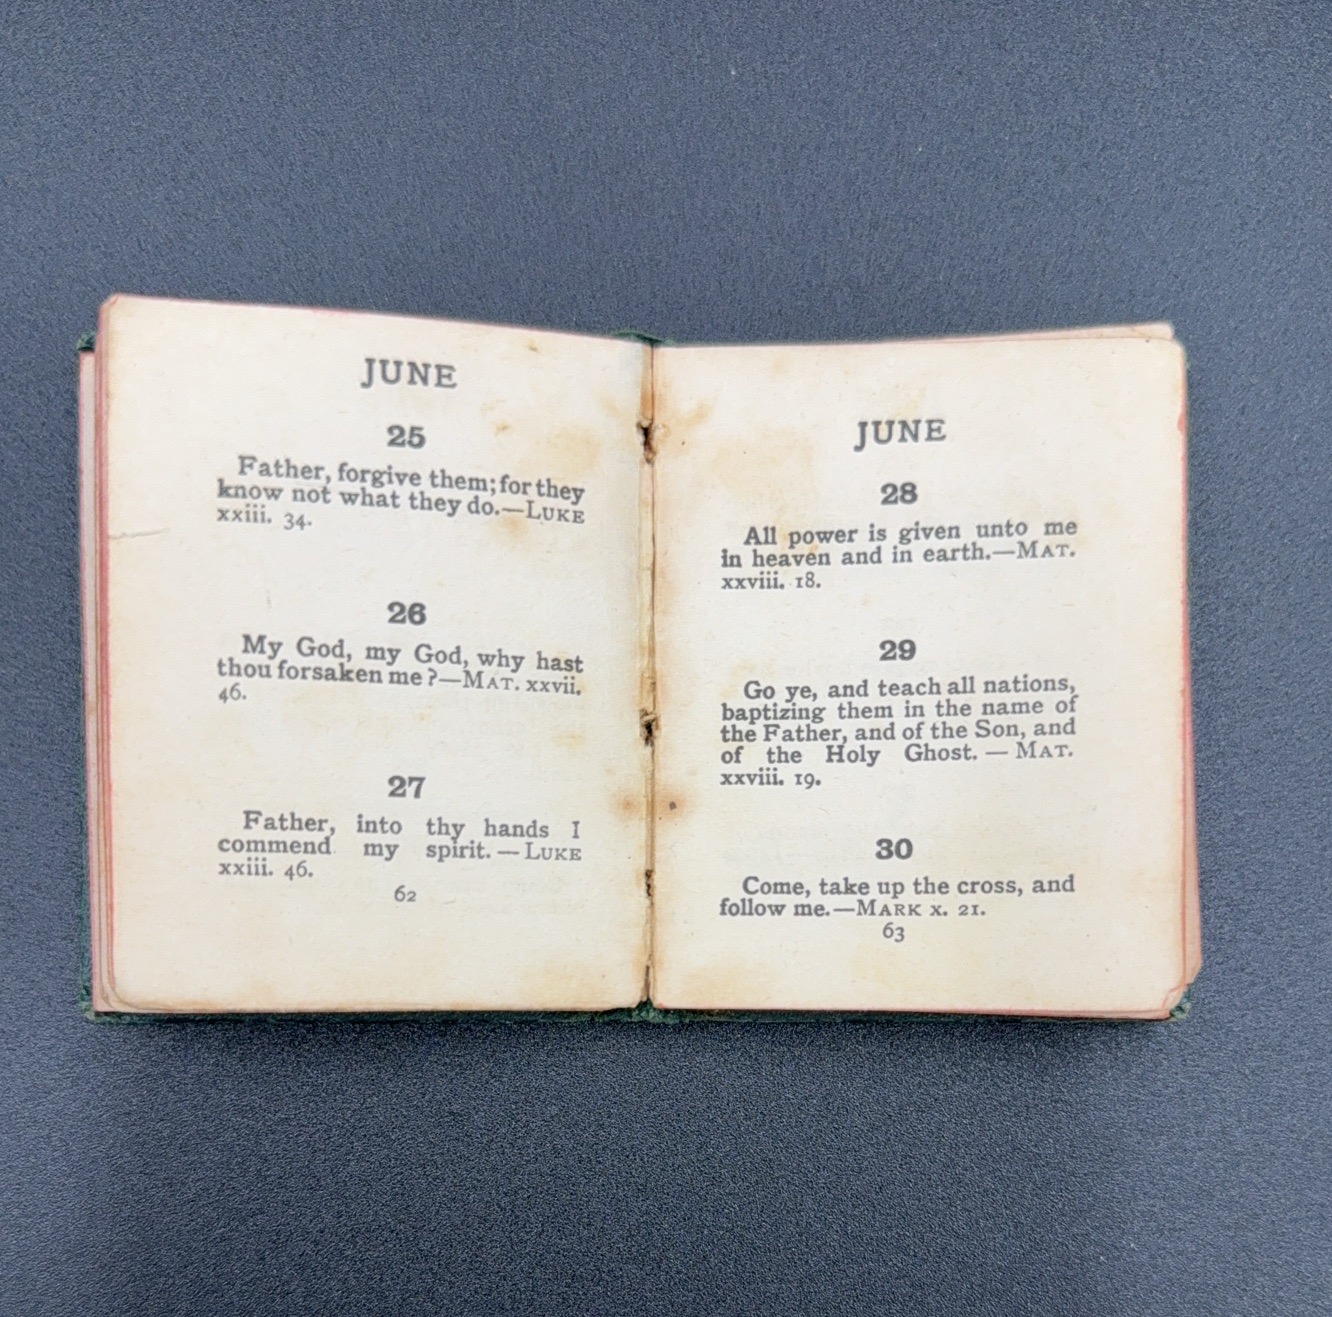 JUNE
25
Father, forgive them; for they
know not what they do.—LUKE
xxiii. 34.
26
My God, my God, why hast
thou forsaken me?—MAT. xxvii.
46.
27
Father, into thy hands I
commend my spirit.—LUKE
xxiii. 46.
62
JUNE
28
All power is given unto me
in heaven and in earth.—MAT.
xxviii. 18.
29
Go ye, and teach all nations,
baptizing them in the name of
the Father, and of the Son, and
of the Holy Ghost. — MAT.
xxviii. 19.
30
Come, take up the cross, and
follow me.—MARK x. 21.
63